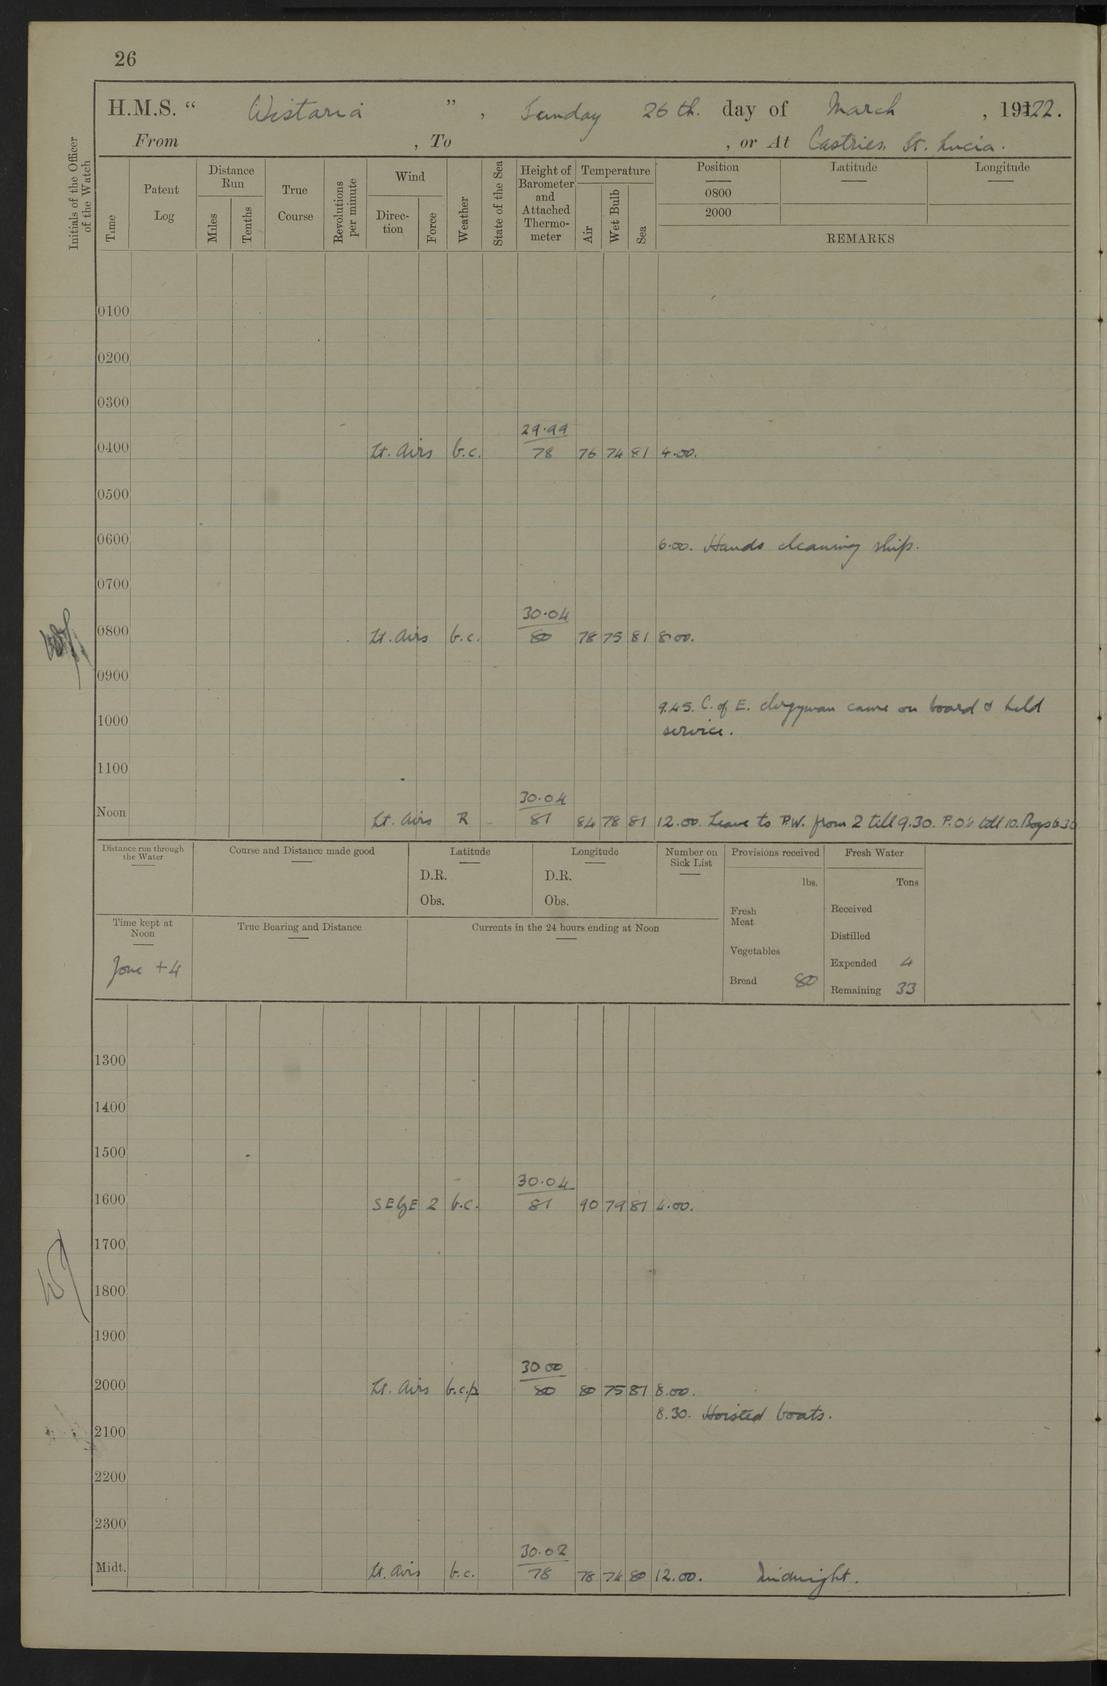 26
H.M.S. “ Wistaria ” , Sunday 26th. day of March , 19122.
From , To , or At Castries. St. Lucia.
Initials of the Officer of the Watch
Time
Patent Log
Distance Run
Miles
Tenths
True Course
Revolutions per minute
Wind
Direc-tion
Force
Weather
State of the Sea
Height of Barometer and Attached Thermo-meter
Temperature
Air
Wet Bulb
Sea
Position Latitude Longitude
0800
2000
REMARKS
0100
0200
0300
29.99
0400 Lt. Airs b.c. 78 76 74 81 4.00.
0500
0600 6.00. Hands cleaning ship.
0700
30.04
0800 Lt. Airs b.c. 80 78 75 81 8.00.
0900
9.45. C. of E. clergyman came on board & held
1000 service.
1100
30.04
Noon Lt. Airs R 81 84 78 81 12.00. Leave to P.W. from 2 till 9.30. P.O's till 10. Boys 6.30
Distance run through the Water
Course and Distance made good
Latitude
D.R.
Obs.
Longitude
D.R.
Obs.
Number on Sick List
Provisions received
lbs.
Fresh Meat
Vegetables
Bread 80
Fresh Water
Tons
Received
Distilled
Expended 4
Remaining 33
Time kept at Noon
Zone +4
True Bearing and Distance
Currents in the 24 hours ending at Noon
1300
1400
1500
30.04
1600 SEbE 2 b.c. 81 90 79 81 4.00.
1700
1800
1900
30 00
2000 Lt. Airs b.c.p 80 80 75 81 8.00.
8.30. Hoisted boats.
2100
2200
2300
30.02
Midt. Lt. Airs b.c. 78 78 74 80 12.00. Midnight.